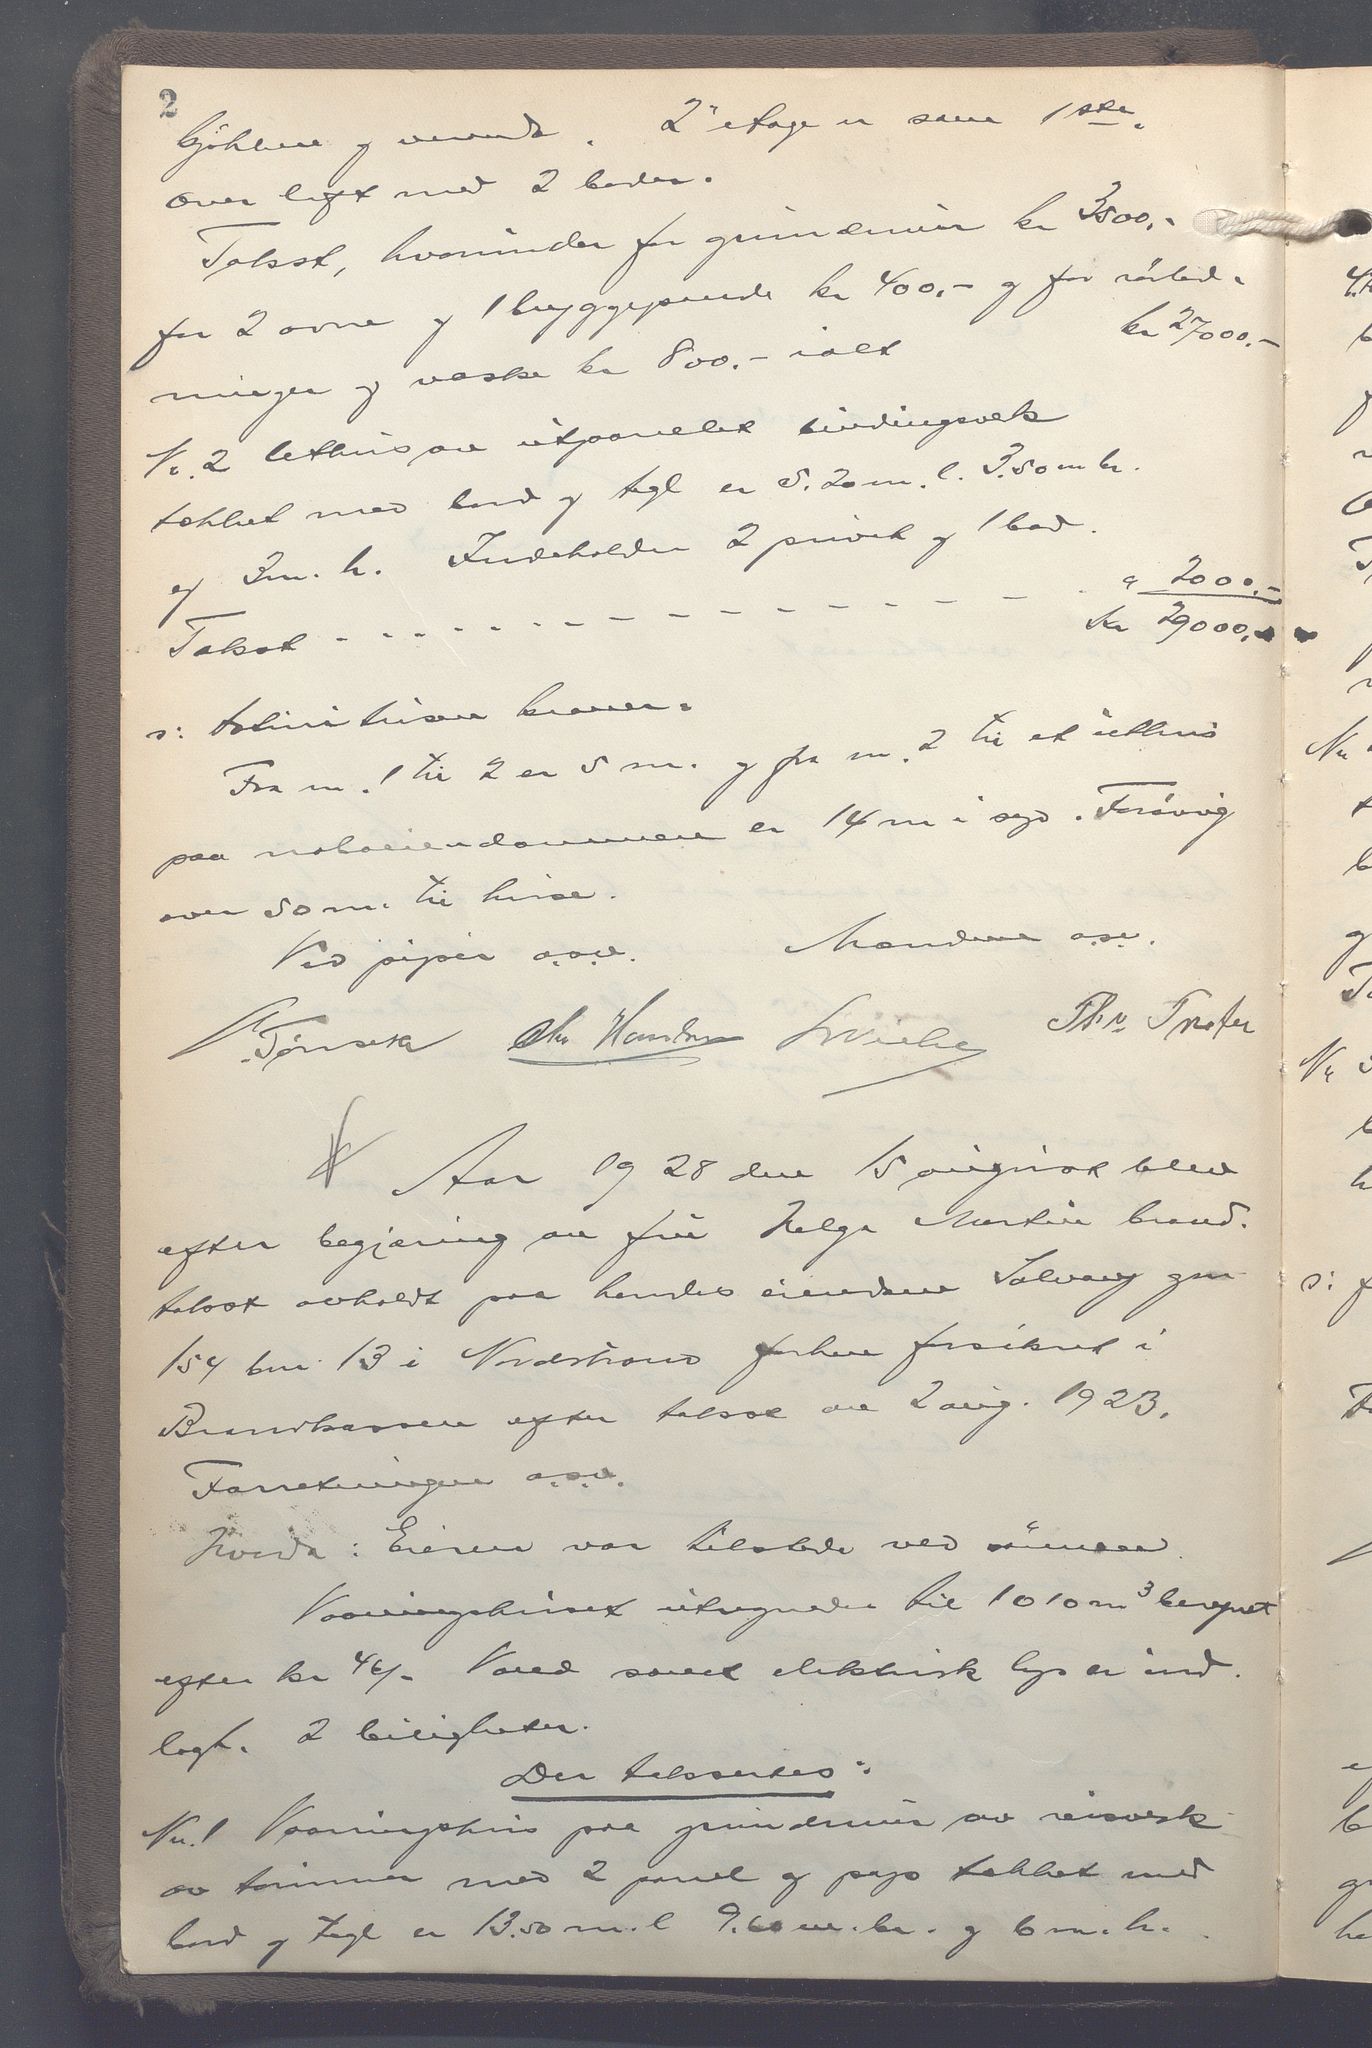 2
kjökken og veranda. 2" etage er som 1ste.
Over loft med 2 boder.
Takst, hvorunder for grundmur kr 3500,-
for 2 ovne og 1 bryggepande kr 400,- og for rörled-
ninger og vaske kr 800.- ialt kr 27000.-
Nr. 2 Uthus av utpanelet bindingsverk
tækket med bord og tegl er 5.20 m. l. 3.50 m br.
og 3 m. h. Indeholder 2 privet og 1 bod.
Takst - - - - - - - - - - - - " 2000.-
kr 29000.-
s: totiniitusen kroner.
Fra nr. 1 til 2 er 5 m. og fra nr. 2 til et uthus
paa naboeiendommen er 14 m i syd. Forövrig
over 50 m. til huse.
Ved piper o.s.v. Mændene o.s.v.
Aar 1928 den 15 august blev
efter begjæring av fru Helga Martin brand-
takst avholdt paa hendes eiendom Solvang gnr
154 bnr 13 i Nordstrand forhen forsikret i
Brandkassen efter takst av 2 aug. 1923.
Forretningen o.s.v.
Hvorda: Eieren var tilstede ved
Vaaningshuset utregnedes til 1010 m3 beregnet
efter kr 46/- Vand samt elektrisk lys er ind-
lagt. 2 leiligheter.
Der takseredes:
Nr. 1 Vaaningshus paa grundmur av reisverk
av tömmer med 2 panel og pap tækket med
bord og tegl er 13.50 m. l 9.60 m. br. og 6 m. h.